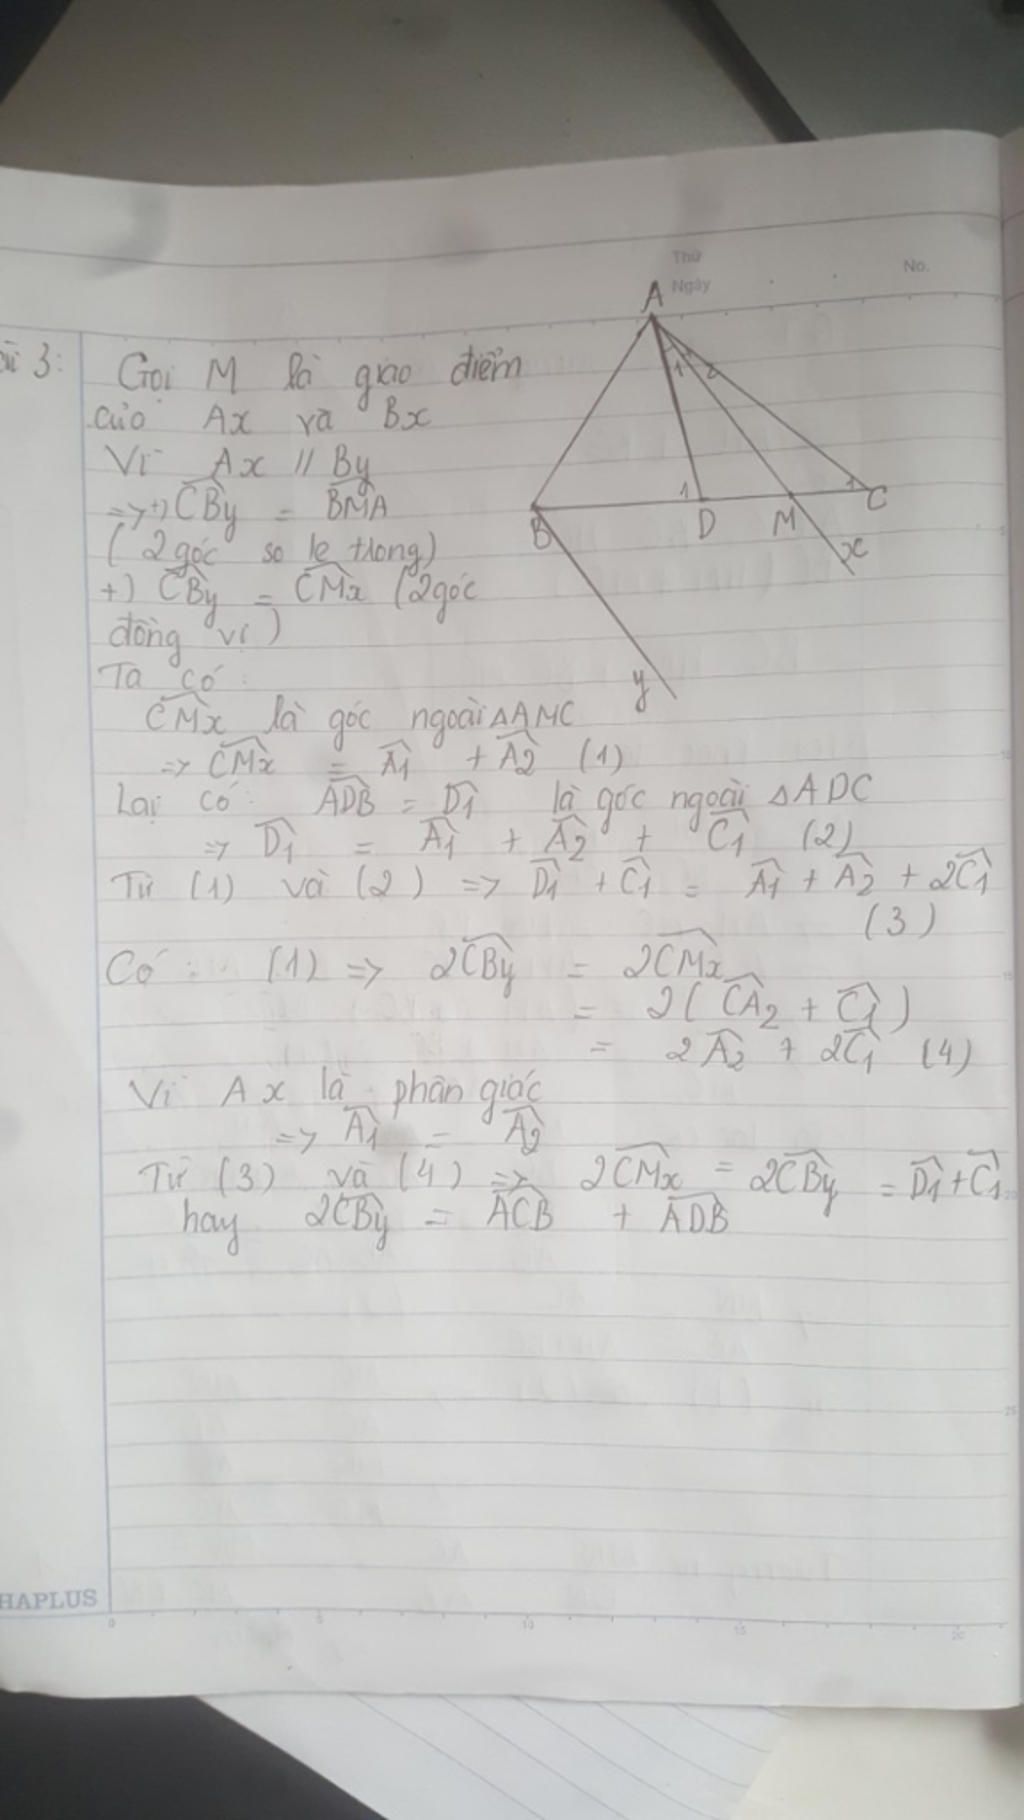 Thứ
Ngày
No.
3:
Gọi M là giao điểm
của Ax và Bx
Vì Ax // By
=> +) \widehat{CBy} = \widehat{BMA}
( 2 góc so le trong)
+) \widehat{CBy} = \widehat{CMx} (2 góc
đồng vị )
Ta có :
\widehat{CMx} là góc ngoài ΔAMC
=> \widehat{CMx} = \widehat{A1} + \widehat{A2} (1)
Lại có : \widehat{ADB} = \widehat{D1} là góc ngoài ΔADC
=> \widehat{D1} = \widehat{A1} + \widehat{A2} + \widehat{C1} (2)
Từ (1) và (2) => \widehat{D1} + \widehat{C1} = \widehat{A1} + \widehat{A2} + 2\widehat{C1}
(3)
Có : (1) => 2\widehat{CBy} = 2\widehat{CMx}
= 2( \widehat{CA2} + \widehat{C1} )
= 2\widehat{A2} + 2\widehat{C1} (4)
Vì Ax là phân giác
=> \widehat{A1} = \widehat{A2}
Từ (3) và (4) => 2\widehat{CMx} = 2\widehat{CBy} = \widehat{D1} + \widehat{C1}
hay 2\widehat{CBy} = \widehat{ACB} + \widehat{ADB}
A
1 2
1 1
B D M C
x
y
HAPLUS
0 5 10 15 20